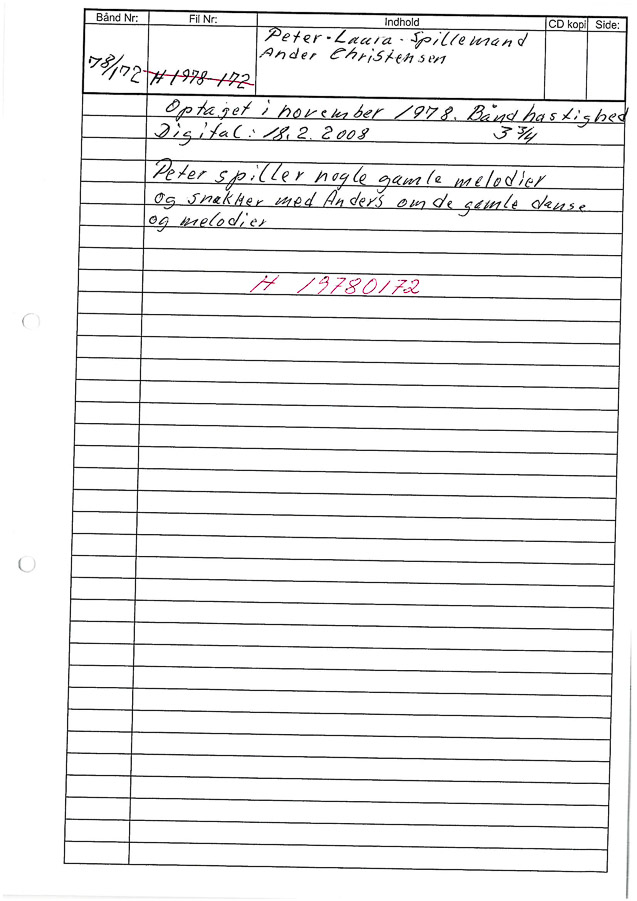 Bånd Nr: Fil Nr: Indhold CD kopi Side:
78/172 H 1978-172 Peter-Laura-Spillemand
Ander Christensen
Optaget i november 1978. Båndhastighed
Digital: 18.2.2008 3 3/4
Peter spiller nogle gamle melodier
og snakker med Anders om de gamle danse
og melodier
H 19780172